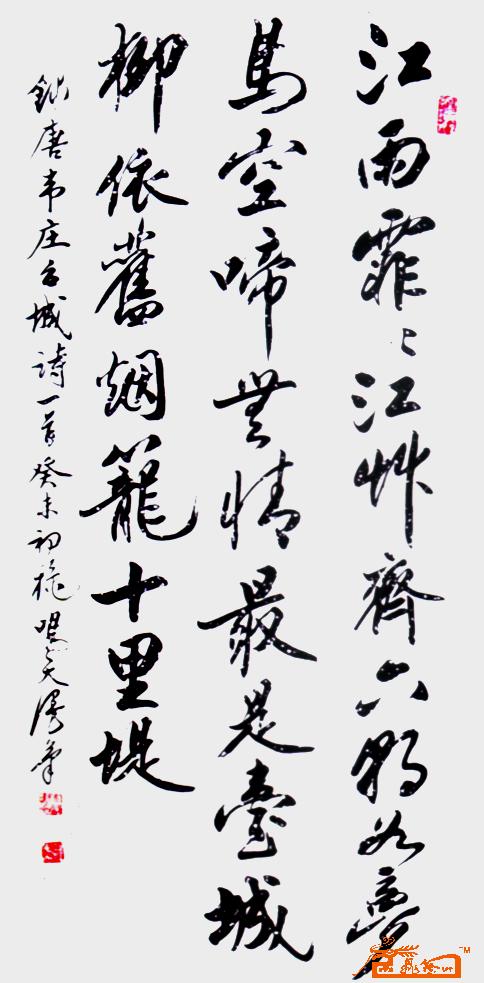 江雨霏〻江艸齊六朝如夢
鳥空啼無情最是臺城
柳依舊烟籠十里堤
錄唐韦庄台城詩一首癸未初秋